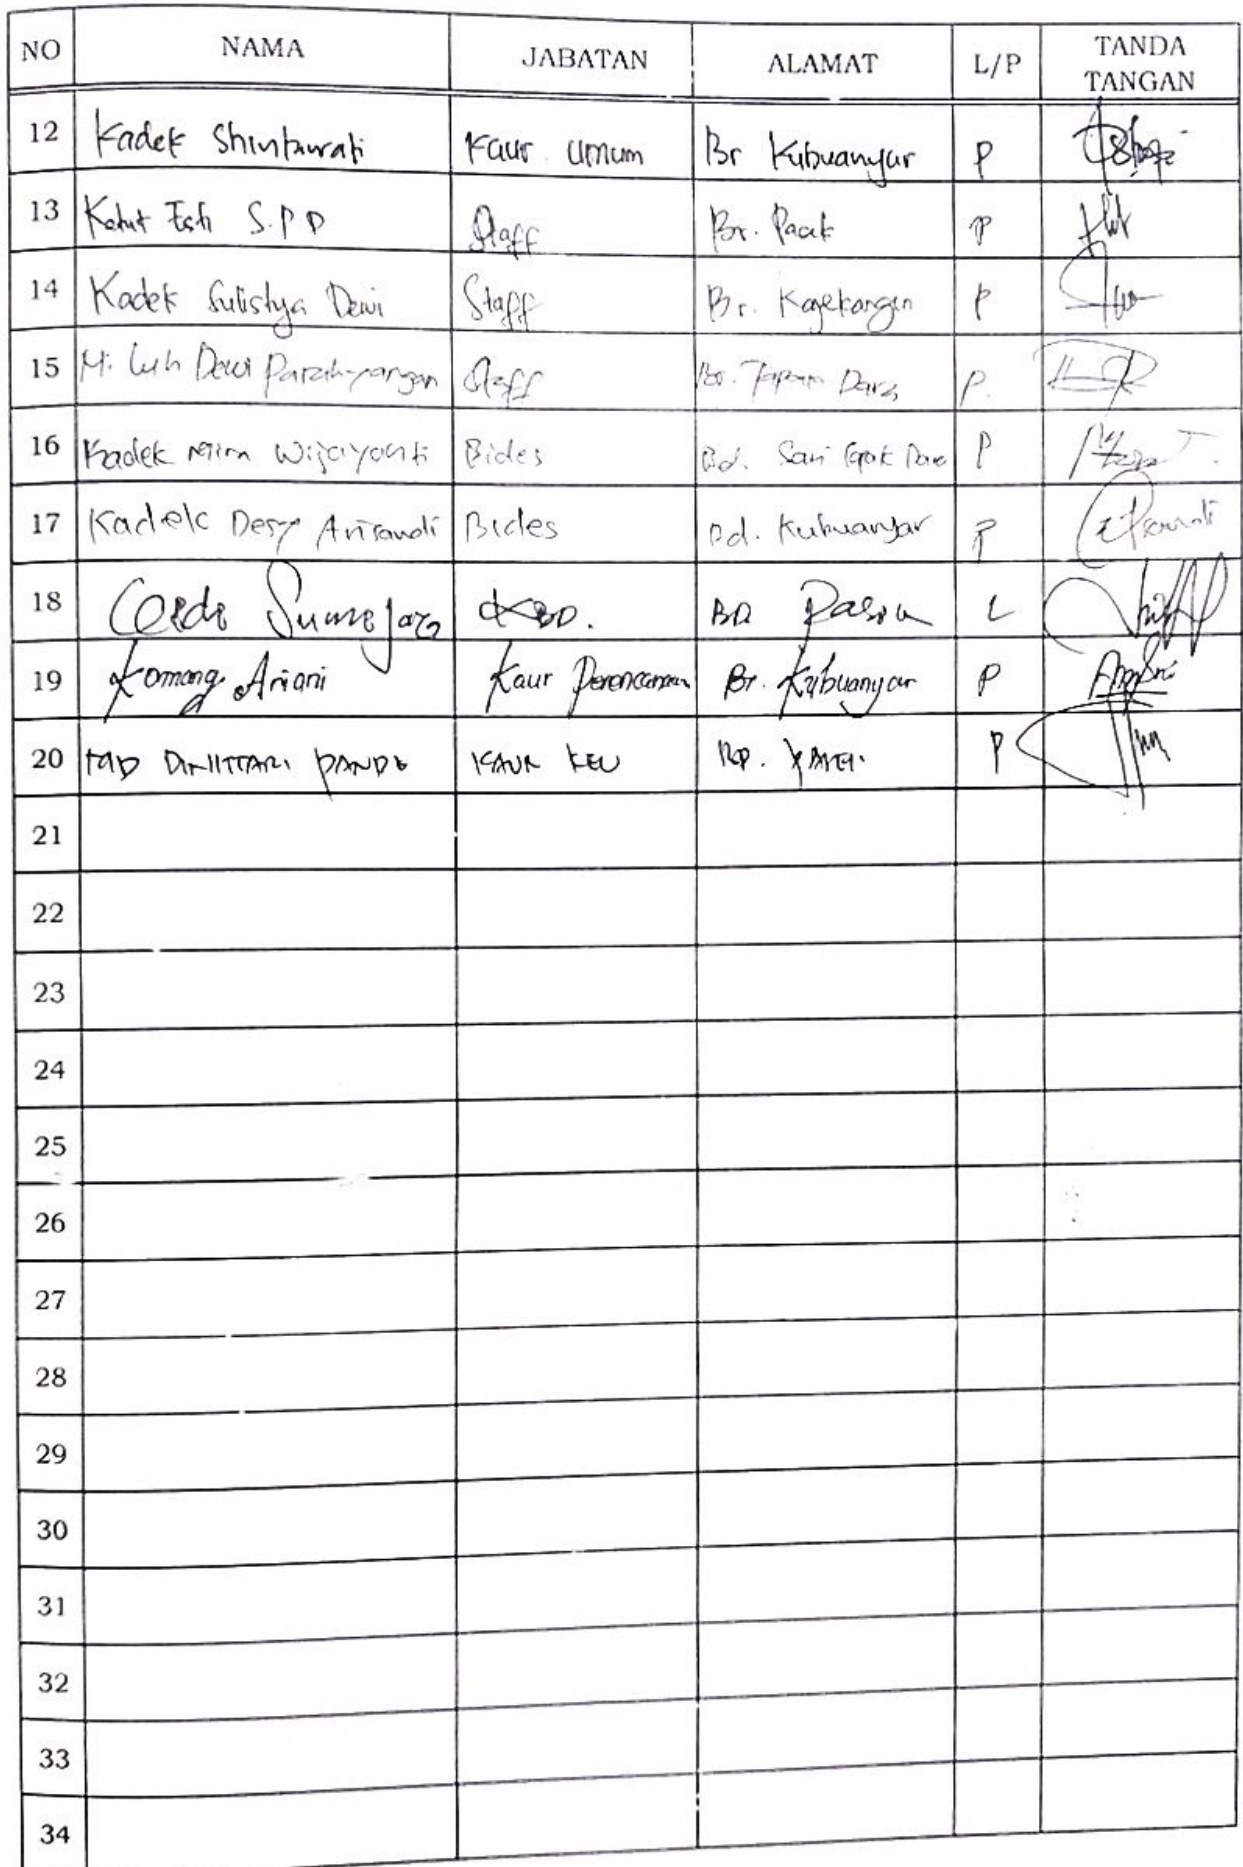 NO NAMA JABATAN ALAMAT L/P TANDA TANGAN
12 Kadek Shintawati Kaur Umum Br Kubuanyar P
13 Ketut Esti S.PD Staff Br. Paak P
14 Kadek Sulistya Dewi Staff Br. Kajekangin P
15 Luh Dewi Parahyangan Staff Br. P.
16 Kadek Wijayanti Bides Bd. Sari P
17 Kadek Desy Arisandi Bides Bd. Kubuanyar P
18 Gede KBD. BD L
19 Komang Ariani Kaur Perencanaan Br. Kubuanyar P
20 PANDE KAUR KEU P
21
22
23
24
25
26
27
28
29
30
31
32
33
34